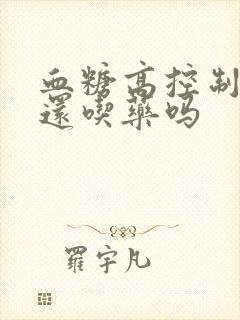 血糖高控制
還喫藥吗
羅宇凡